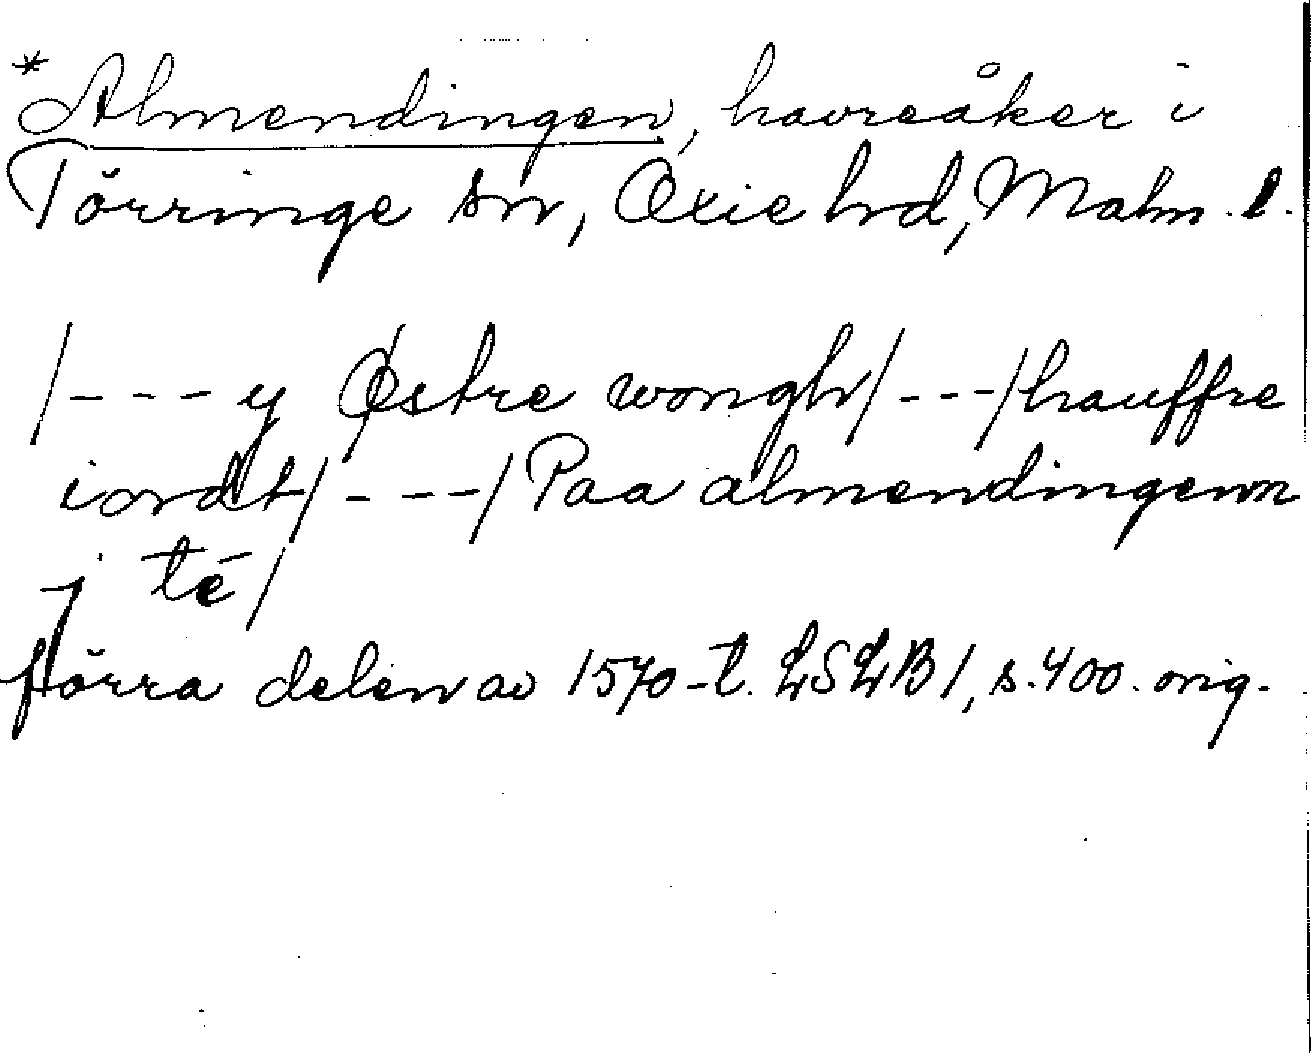 *Almendingen, havreåker i
Törringe sn, Oxie hd, Malm. l.
/---y Østre wongh/---/hauffre
iordt/---/Paa almendingenn
j té/
förra delen av 1570-t. LSLB1, s.400. orig.